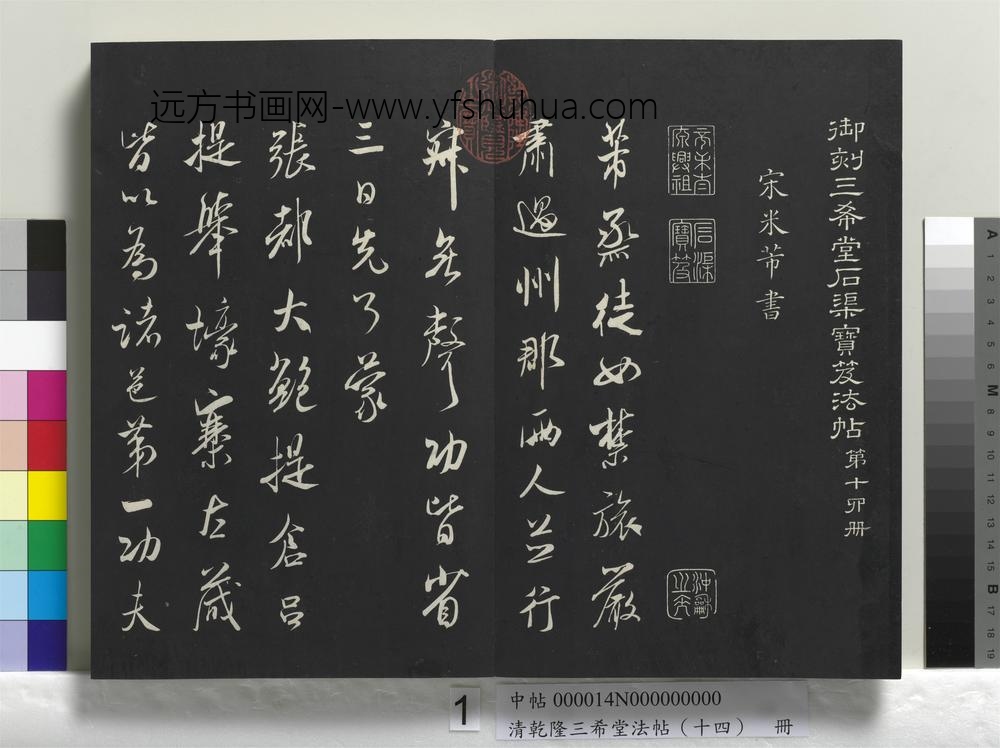 御刻三希堂石渠寶笈法帖第十四冊
宋米芾書
石渠
寶笈
芾烝徒如禁旅嚴
肅過州郡兩人並行
寂無聲功皆省
三日先了蒙
張都大鮑提倉呂
提舉壕寨左藏
皆以為諸邑第一功夫
远方书画网-www.yfshuhua.com
1
中帖 000014N000000000
清乾隆三希堂法帖（十四） 冊
A
1
2
3
4
5
6
M
8
9
10
11
12
13
14
15
B
17
18
19